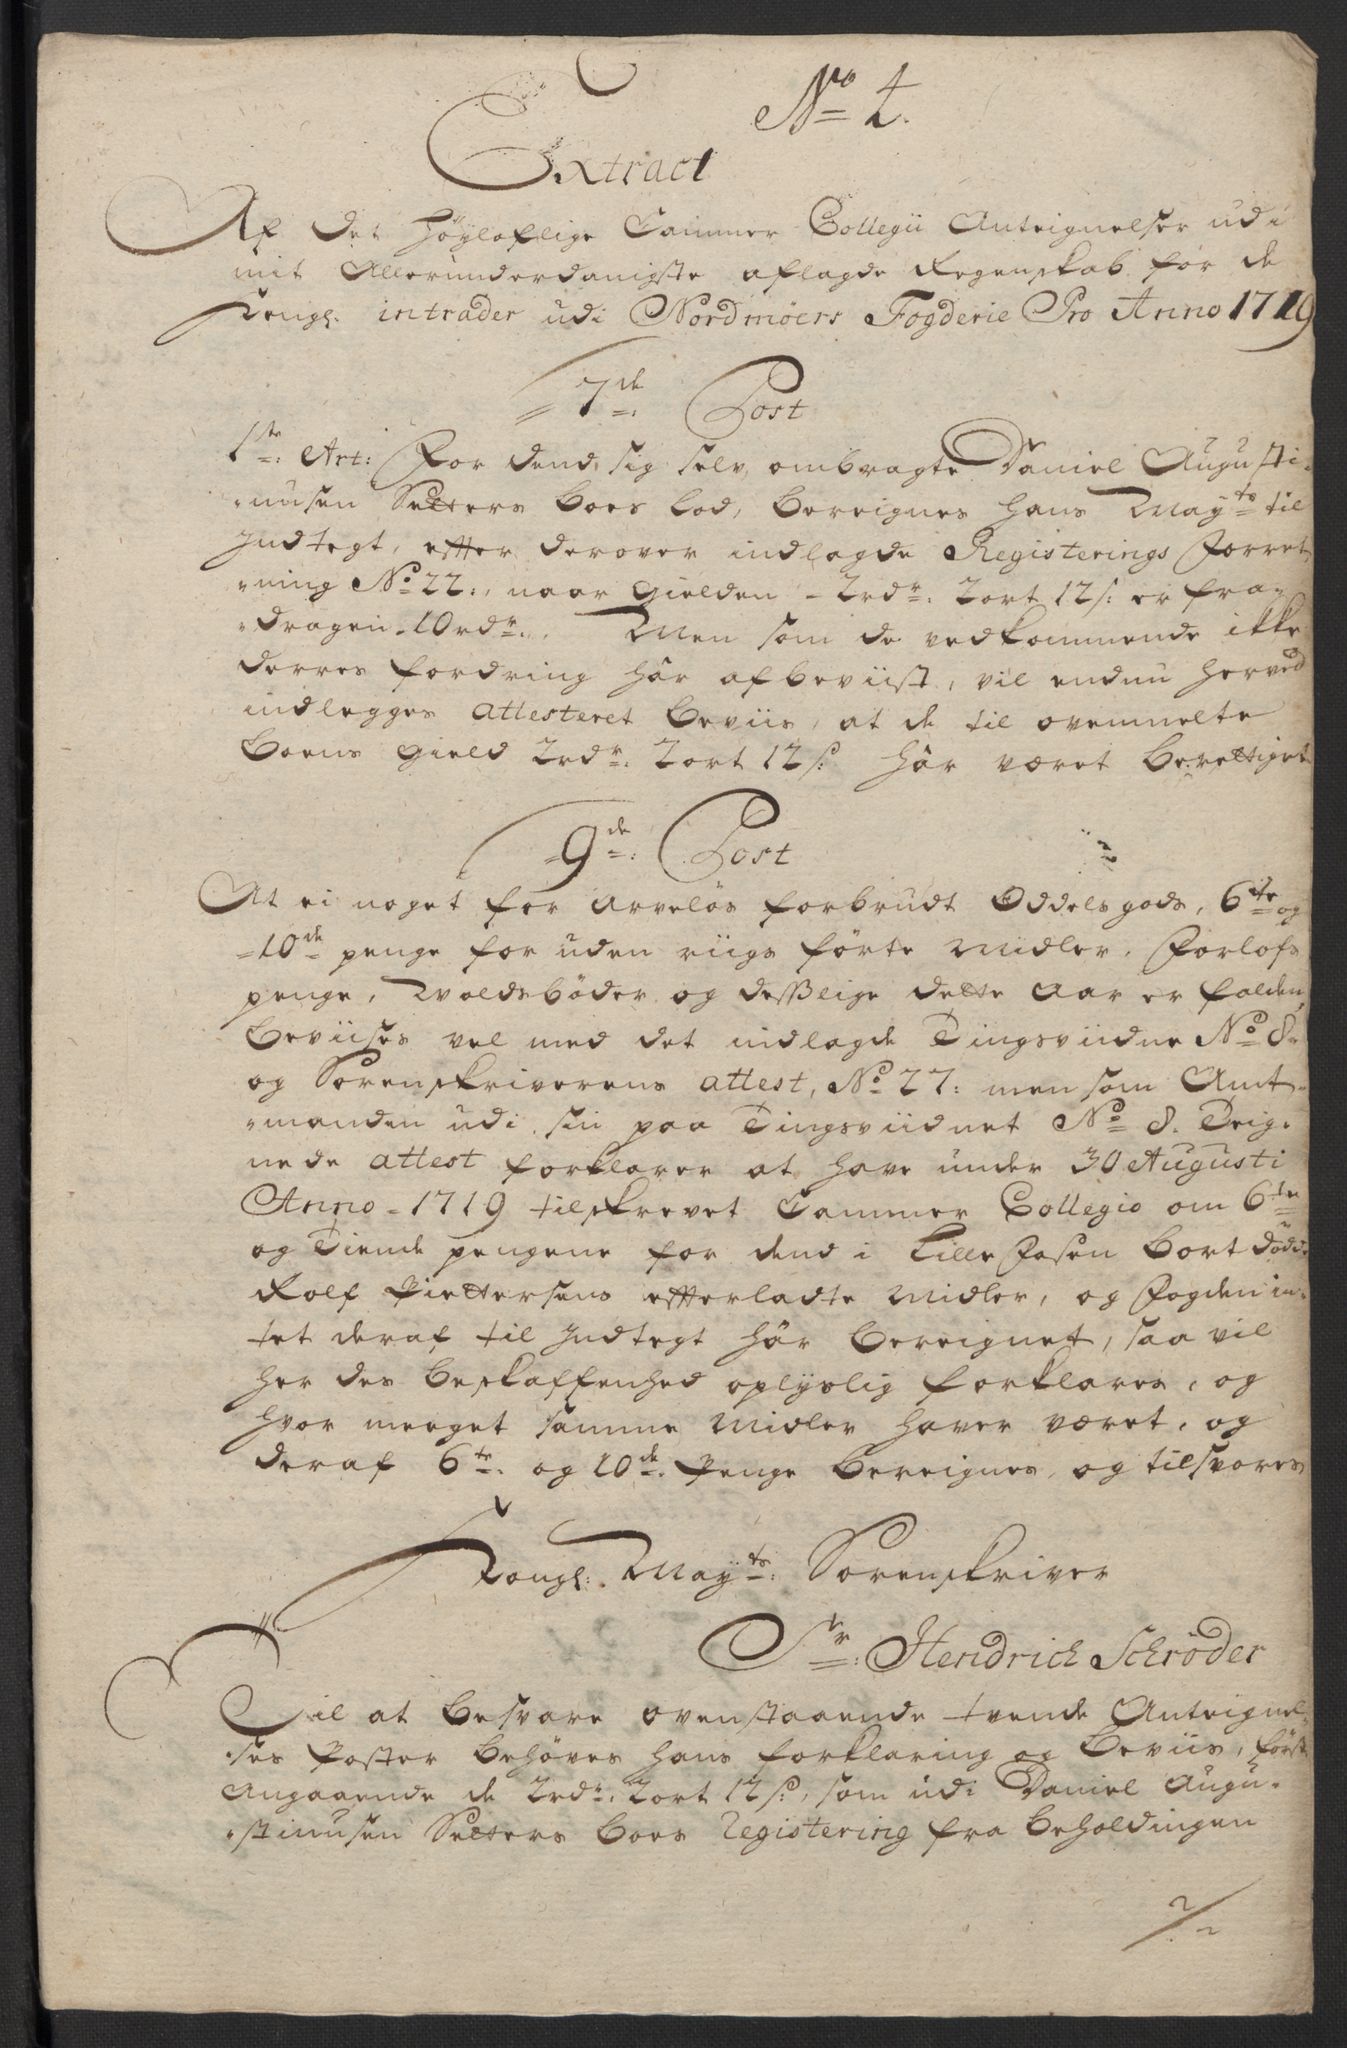 No 4.
Extract
Af Det Höyloflige Cammer Collegii Anteignelser udi
mit Allerunderdanigste aflagde Regenskab for de
Kongl: intrader udi Nordmöers Fogderie Pro Anno 1719
7de Post
1ste Art: For dend sig selv ombragte Daniel Augusti-
nusen Setters Boes lod, bereignes hans Mayts til
Indtegt, efter derover indlagde Registerings Forret-
ning No 22:, naar Gielden - 2rdr. 2ort 12s: er fra-
dragen 10rdr. Men som de vedkommende ikke
derres fordring har afbeviist, vil endnu herved
indlegges attesteret beviis, at de til ovenmelte
Boens Gield 2rdr. 2ort 12s: har været berettiget
9de Post
At ei noget for arvelös forbrudt Oddelsgods, 6te og
10de penge for uden riigs förte midler, Forlofs
penge, Voldsböder og desslige dette Aar er falden,
beviises vel med det indlagde Tingsviidne No 8
og Sorenskriverens attest, No 27: men som Amt-
manden udi sin paa Tingsviidnet No 8. Teig-
nede attest forklarer at have under 30 Augusti
Anno 1719 tilskrevet Cammer Collegio om 6te
og Tiende pengene for dend i Lille Fosen bort döde
Rolf Piettersens efterladte midler, og Fogden in-
tet deraf til Indtegt har bereignet, saa vil
her des beskaffenhed oplyslig forklares, og
hvor meeget samme midler haver været, og
deraf 6te og 10de Penge bereignes, og tilsvares
Kongl: Mayts: Sorenskriver
Sr: Hendrich Schröder
Til at besvare ovenstaaende tvende Anteignel-
ses Poster behöves hans forklaring og beviis, först
Angaaende de 2rdr. 2ort 12s:, som udi Daniel Augu-
stinusen Setters boes Registering fra beholdingen